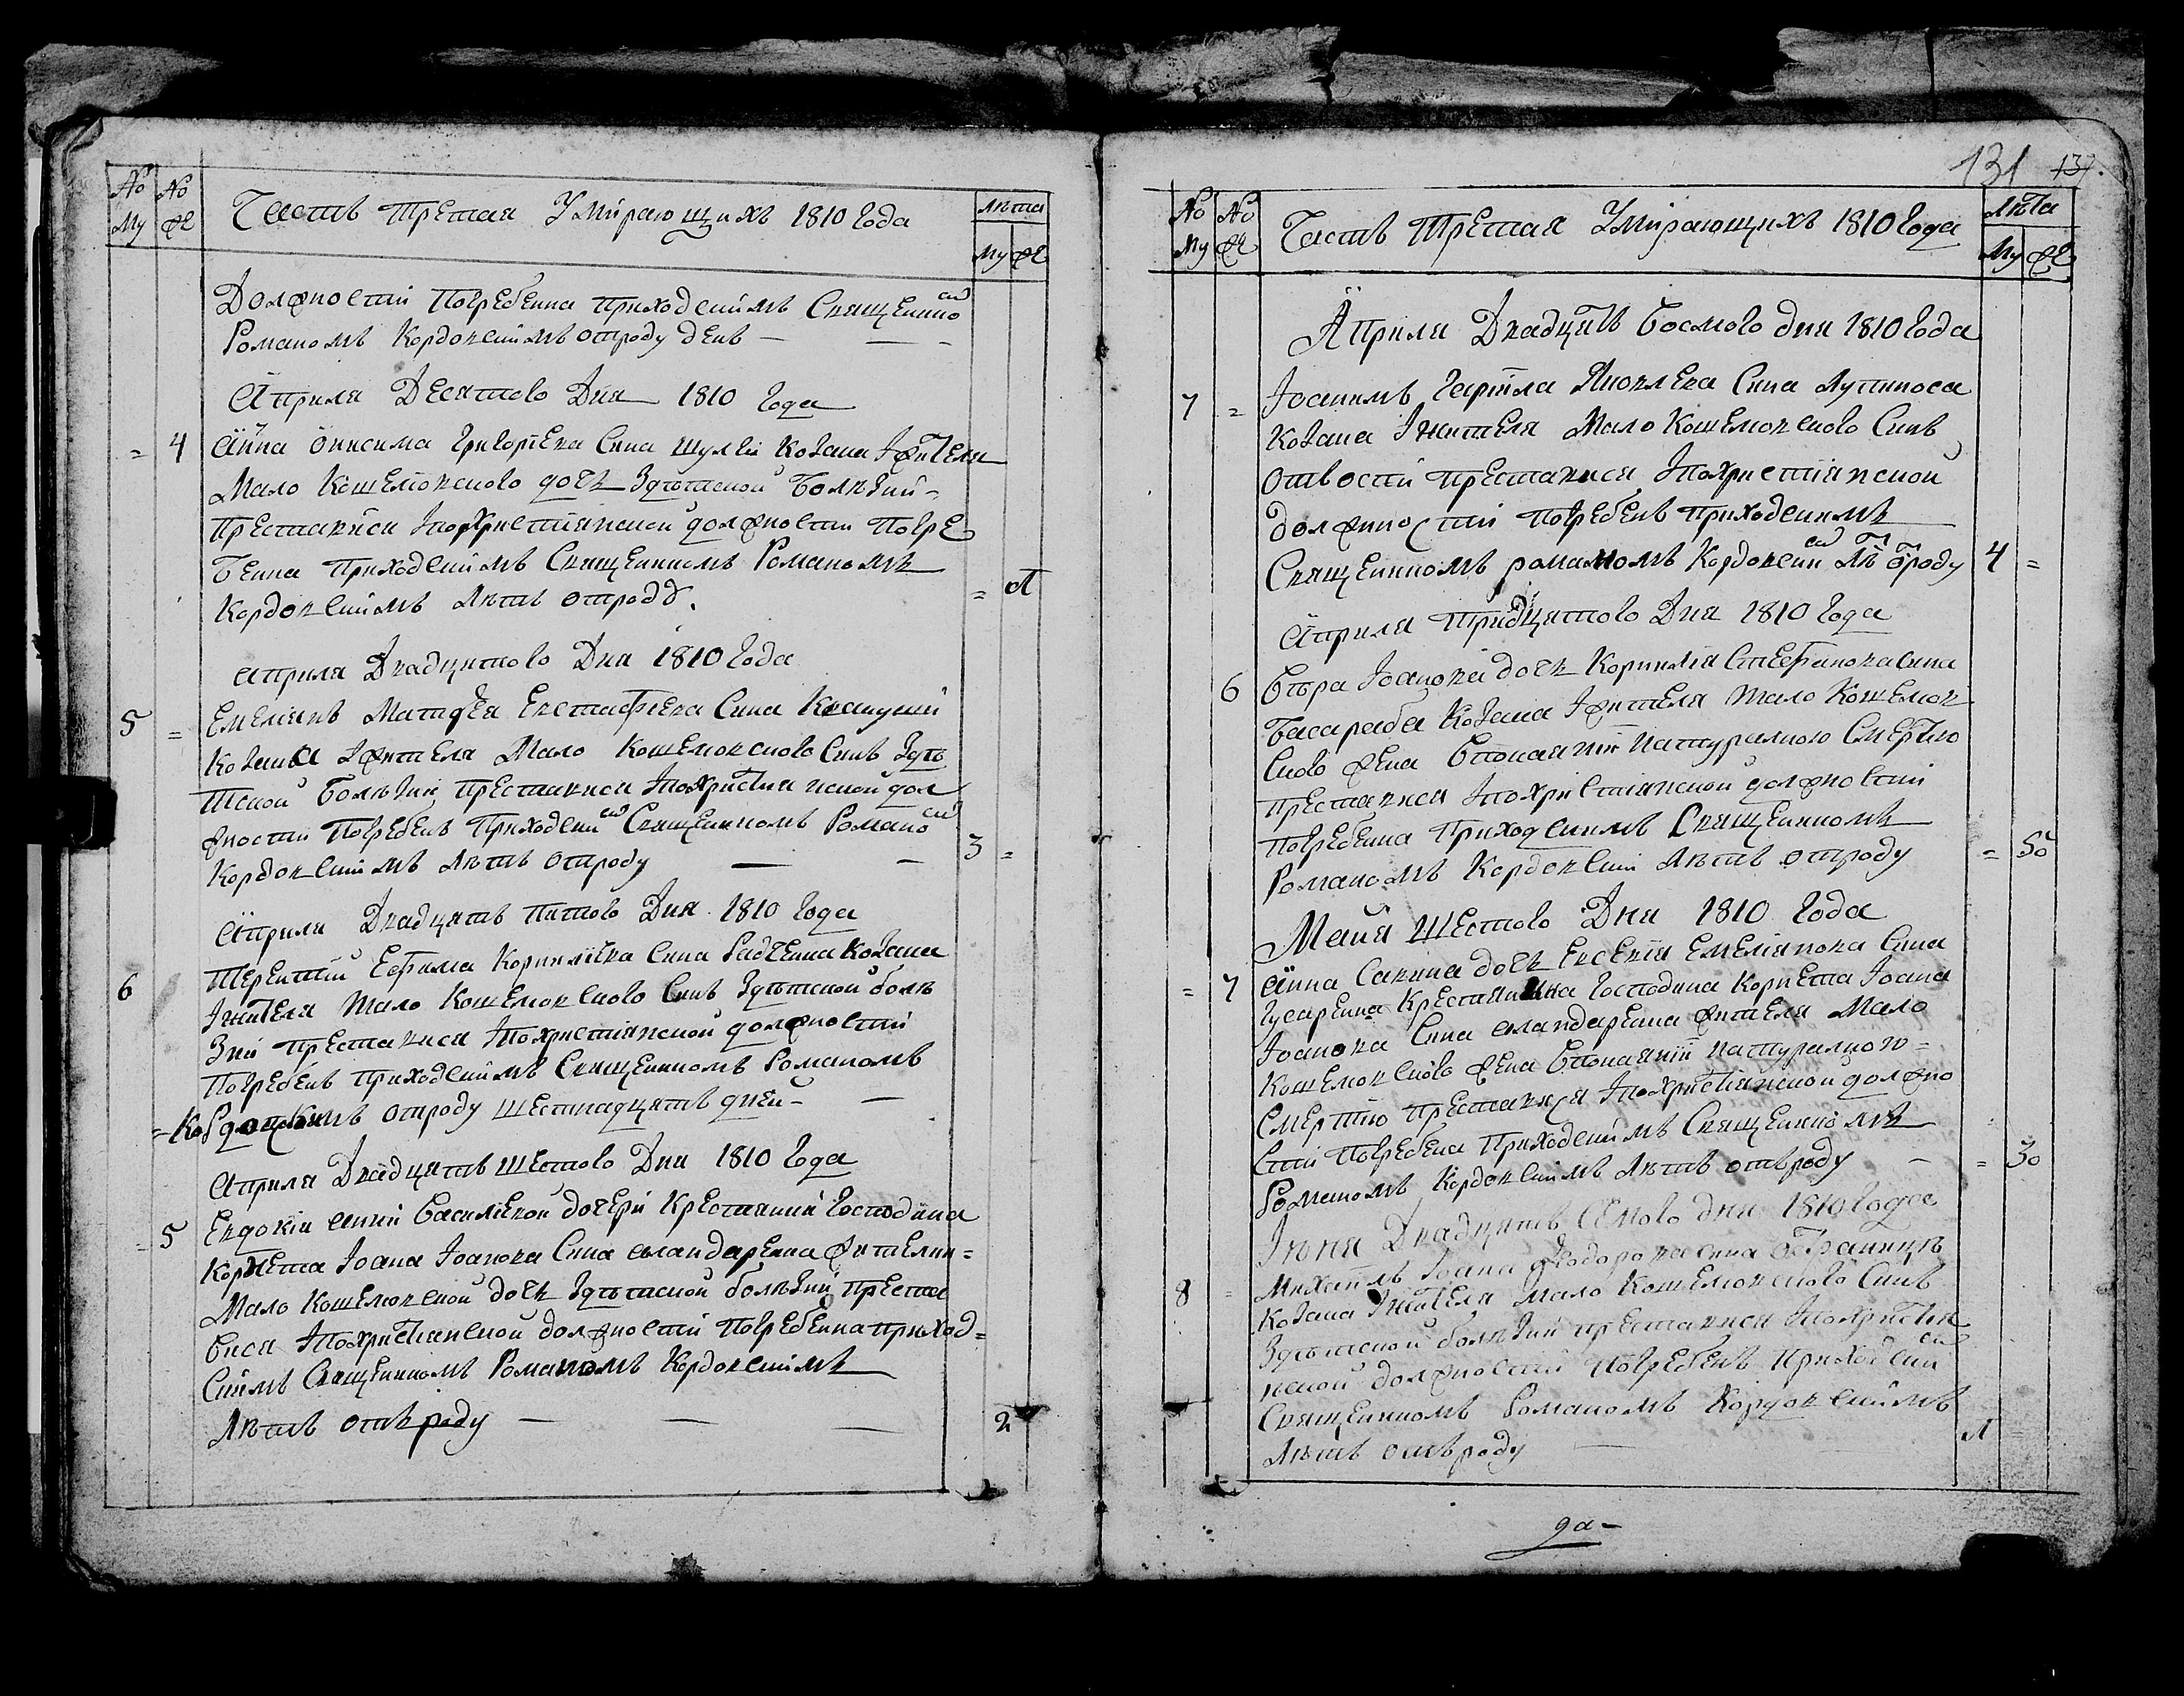 № Му № же Часть третая Умирающихъ 1810 года лѣта Му же
Должности погребенна приходскимъ Священико
Романомъ Кордовскимъ отроду день
Априля Десятого Дня 1810 года
= 4 Анна Онисима Григориева Сина Шулги Козака Жителя
Мало Кошелювского дочь Здѣтской Болѣзни
преставися и похристиянской должности погре
бенна приходскимъ Священикомъ Романомъ
Кордовскимъ лѣтъ отроду = 1
априля Двадцятого Дня 1810 года
5 = Емелиянъ Матфея Евстафиева Сина
Козака Жителя Мало Кошелювского Синъ Здѣ
тской Болѣзни преставися и похристиянской дол
жности погребенъ приходски Священикомъ Романо
Кордовскимъ лѣтъ отроду 3 =
Априля Двадцять пятого Дня 1810 года
6 Терентий Ефима Корнилиева Сина Радченка Козака
Жителя Мало Кошелювского Синъ Здѣтской болѣ
зни преставися и похристиянской должности
погребенъ приходскимъ Священикомъ Романомъ
Кордовскимъ отроду шестнадцять дней
Априля Двадцять шестого Дня 1810 года
= 5 Евдокии Анни Василиевой дочери Крестянки господина
Корнета Іоана Іоанова Сина Жителки
Мало Кошелювской дочь Здѣтской болѣзни преста
вися и похристиянской должности погребенна приход=
скимъ Священикомъ Романомъ Кордовскимъ
Лѣтъ отъ роду 2
131 137.
№ Му № же Часть Третая Умирающихъ 1810 года Лѣта Му же
Априля Двадцять Восмого дня 1810 года
7 = Іоакимъ Гаврила Яковлева Сина Лупиноса
Козака Жителя Мало Кошелювского Синъ
преставися и похристиянской
должности погребенъ приходскимъ
Священикомъ романомъ Кордовски лѣ отроду 4 =
Априля тридцятого Дня 1810 года
6 Вѣра Іоанова дочь Корнилия Стефанова сина
Басараба Козака Жителя Мало Кошелюв
ского жена Впокаянии Натуралною Смертию
преставися и похристиянской должности
погребенна приходскимъ Священикомъ
Романомъ Кордовски лѣтъ отроду = 50
Майя шестого Дня 1810 года
= 7 Анна Савина дочь Евсевия Емелиянова Сина
Гусаренка Крестянина Господина Корнета Іоана
Іоанова Сина жителя Мало
Кошелювского жена Впокаянии натуралною
Смертию преставися и похристиянской должно
сти погребена приходскимъ Священикомъ
Романомъ Кордовскимъ лѣтъ отъ роду = 30
Іюня Двадцять семого дня 1810 года
8 = Михаилъ Іоана Феодорова сина
Козака Жителя Мало Кошелювского Синъ
Здѣтской болѣзни преставися и похристия
нской должности погребенъ приходски
Священикомъ Романомъ Кордовскимъ
Лѣтъ отъ роду 1